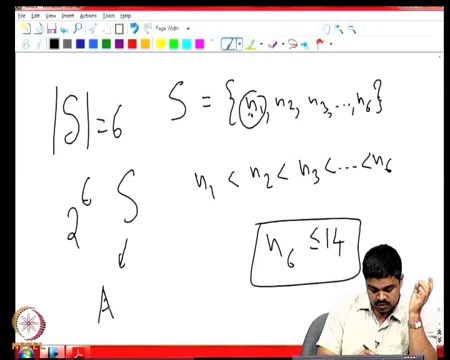 File Edit View Insert Actions Tools Help
Page Width
|S| = 6
S = {n₁, n₂, n₃, ..., n₆}
n₁ < n₂ < n₃ < ... < n₆
2⁶ S
n₆ ≤ 14
A